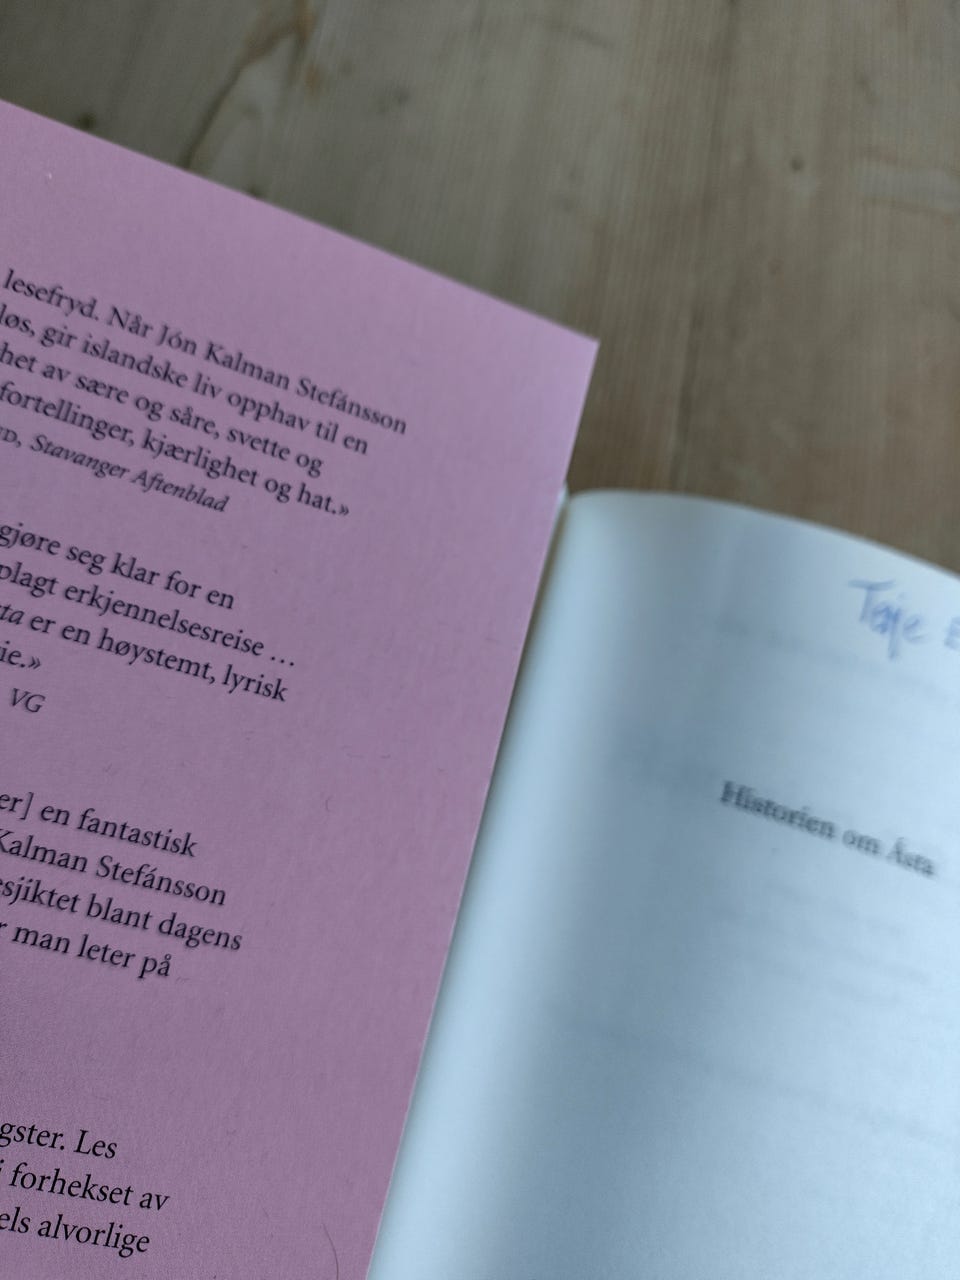 lesefryd. Når Jón Kalman Stefánsson
løs, gir islandske liv opphav til en
het av sære og såre, svette og
fortellinger, kjærlighet og hat.»
ND, Stavanger Aftenblad
gjøre seg klar for en
plagt erkjennelsesreise …
ta er en høystemt, lyrisk
ie.»
VG
er] en fantastisk
Kalman Stefánsson
esjiktet blant dagens
r man leter på
gster. Les
i forhekset av
els alvorlige
Historien om Ásta